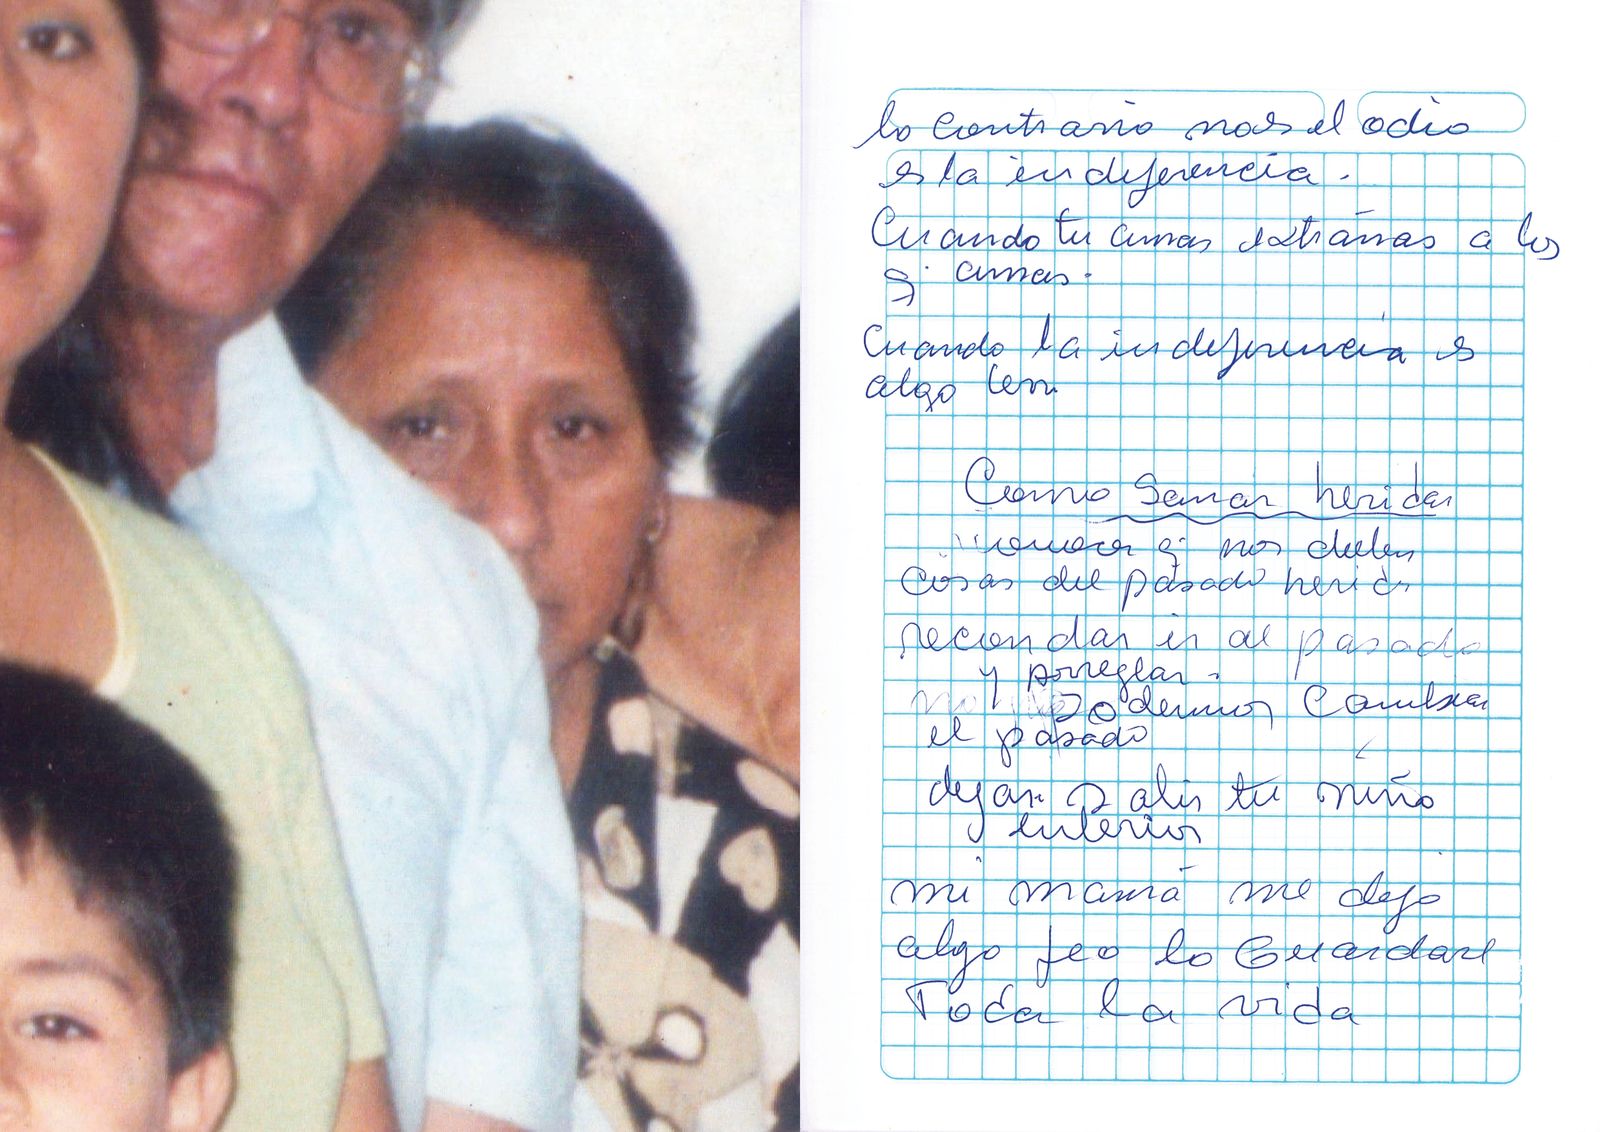 lo contrario no es el odio
es la indeferencia.
Cuando tu amas extrañas a los
q' amas.
Cuando la indeferencia es
algo
Como Sanar heridas
q' nos duelen
cosas del pasado
recordar ir al pasado
y arreglar.
no podemos Cambiar
el pasado
dejar salir tu niño
interior
mi mamá me dejo
algo feo lo Guardare
Toda la vida